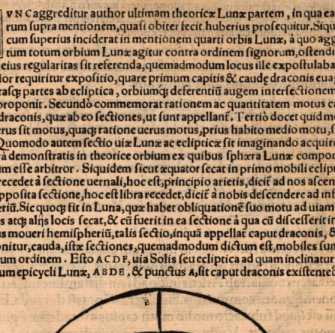 VNC aggreditur author ultimam theoricæ Lunæ partem, in qua ea
rum supra mentionem, quasi obiter fecit huberius prosequitur. Siqu
cum superius inciderat in mentionem quarti orbis Lunæ, à quo ag
ium totum orbium Lunæ agitur contra ordinem signorum, ostend
eius regularitas sit referenda, quemadmodum locus ille expostulaba
lor requiritur expositio, quare primum capitis & caudę draconis eua
rasq; partes ab ecliptica, orbiumq; deferentiū augem intersectionem
proponit. Secundò commemorat rationem ac quantitatem motus c
draconis, quæ ab eo sectiones, ut sunt appellant. Tertiò docet quid me
erus sit motus, quacq; ratione uerus motus, prius habito medio motu,
Quomodo autem sectio uiæ Lunæ ac eclipticæ sit imaginando acquir
à demonstratis in theorice orbium ex quibus sphæra Lunæ compo
m esse arbitror. Siquidem sicut æquator secat in primo mobili eclipt
recedēt à sectione uernali, hoc est, principio arietis, dicit ad nos ascen
pposita sectione, hoc est libra recedēt, dicit à nobis descendere ad inf
erū. Sic quoq; fit in Luna, quæ habet obliquationē suo motu ad uiam
s atq; alijs locis secat, & cū fuerit in ea sectione à qua cū discesserit in
us moueri hemisphęriū, talis sectio, inquā appellat caput draconis, &
onitur, cauda, istæ sectiones, quemadmodum dictum est, mobiles sun
um ordinem. Esto ACDF, uia Solis seu ecliptica ad quam inclinatur
um epicycli Lunæ, ABDE, & punctus A, sit caput draconis existente
B